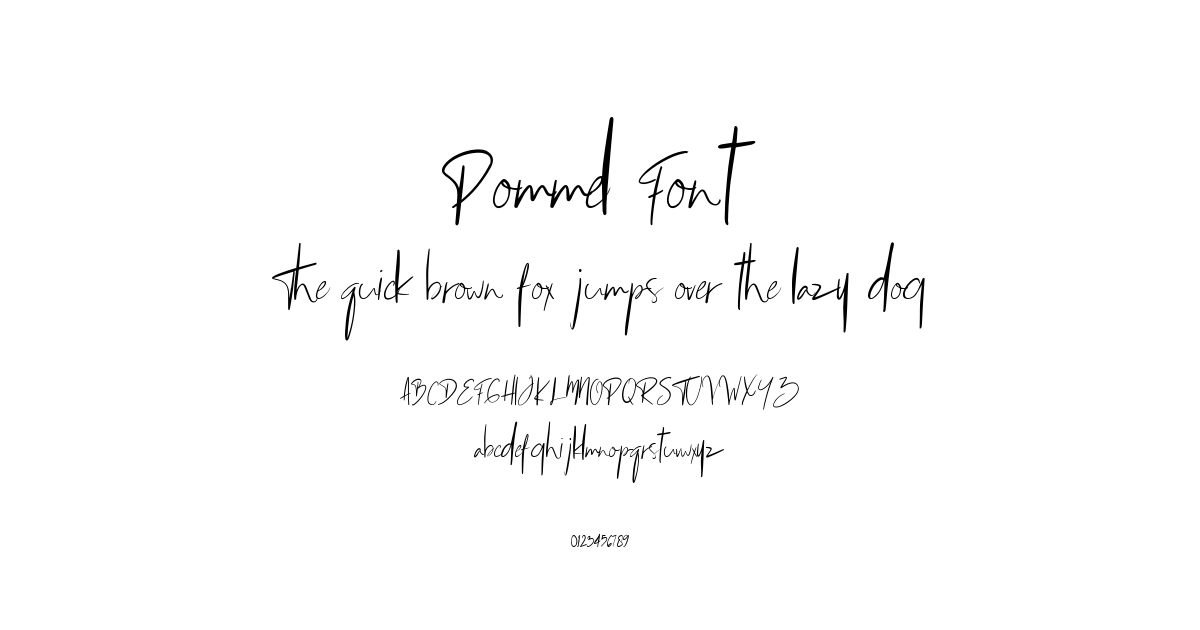 Pommd Font
The quick brown fox jumps over the lazy dog
ABCDEFGHIJKLMNOPQRSTUVWXYZ
abcdefghijklmnopqrstuvwxyz
0123456789